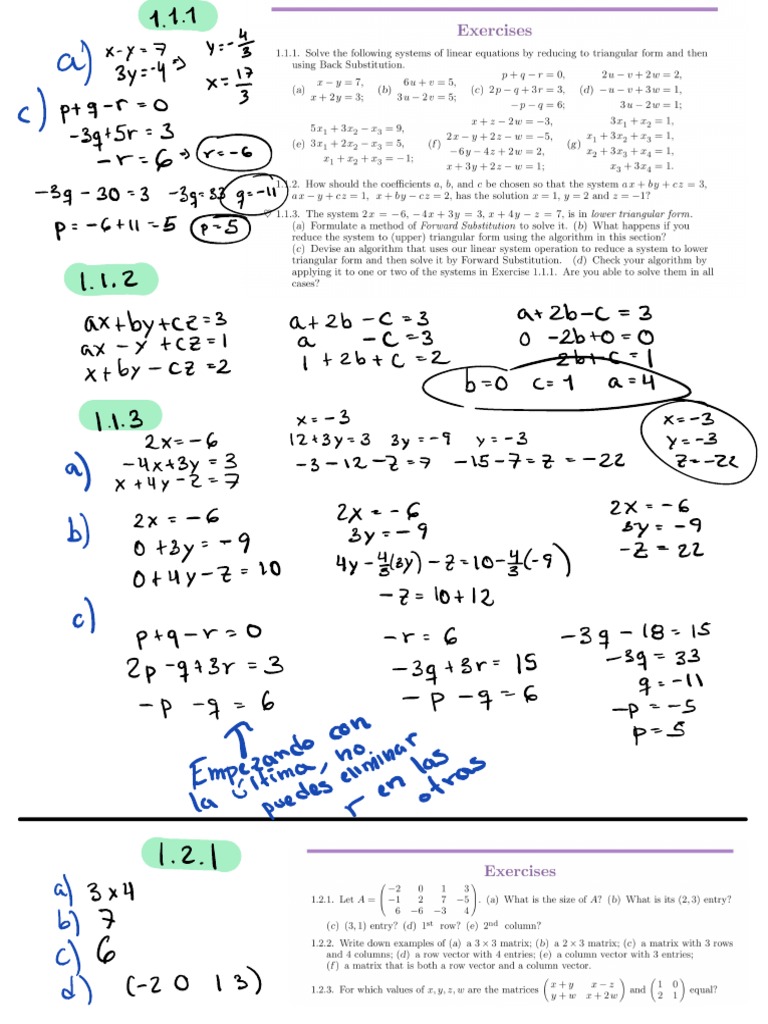 1.1.1
a) x-y=7
3y=-4 ⇒ y=-4/3
x=17/3
c) p+q-r=0
-3q+5r=3
-r=6 ⇒ r=-6
-3q-30=3 -3q=33 q=-11
p=-6+11=5 p=5
Exercises
1.1.1. Solve the following systems of linear equations by reducing to triangular form and then
using Back Substitution.
(a) x − y = 7, x + 2y = 3; (b) 6u + v = 5, 3u − 2v = 5; (c) p + q − r = 0, 2p − q + 3r = 3, −p − q = 6; (d) 2u − v + 2w = 2, −u − v + 3w = 1, 3u − 2w = 1;
(e) 5x₁ + 3x₂ − x₃ = 9, 3x₁ + 2x₂ − x₃ = 5, x₁ + x₂ + x₃ = −1; (f) x + z − 2w = −3, 2x − y + 2z − w = −5, −6y − 4z + 2w = 2, x + 3y + 2z − w = 1; (g) 3x₁ + x₂ = 1, x₁ + 3x₂ + x₃ = 1, x₂ + 3x₃ + x₄ = 1, x₃ + 3x₄ = 1.
1.1.2. How should the coefficients a, b, and c be chosen so that the system ax + by + cz = 3,
ax − y + cz = 1, x + by − cz = 2, has the solution x = 1, y = 2 and z = −1?
♡ 1.1.3. The system 2x = −6, −4x + 3y = 3, x + 4y − z = 7, is in lower triangular form.
(a) Formulate a method of Forward Substitution to solve it. (b) What happens if you
reduce the system to (upper) triangular form using the algorithm in this section?
(c) Devise an algorithm that uses our linear system operation to reduce a system to lower
triangular form and then solve it by Forward Substitution. (d) Check your algorithm by
applying it to one or two of the systems in Exercise 1.1.1. Are you able to solve them in all
cases?
1.1.2
ax+by+cz=3
ax-y+cz=1
x+by-cz=2
a+2b-c=3
a -c=3
1+2b+c=2
a+2b-c=3
0 -2b+0=0
2b+c=1
b=0 c=1 a=4
1.1.3
a) 2x=-6
-4x+3y=3
x+4y-z=7
x=-3
12+3y=3 3y=-9 y=-3
-3-12-z=7 -15-7=z=-22
x=-3
y=-3
z=-22
b) 2x=-6
0+3y=-9
0+4y-z=10
2x=-6
3y=-9
4y-4/3(3y)-z=10-4/3(-9)
-z=10+12
2x=-6
3y=-9
-z=22
c)
p+q-r=0
2p-q+3r=3
-p -q=6
-r=6
-3q+3r=15
-p-q=6
-3q-18=15
-3q=33
q=-11
-p=-5
p=5
Empezando con
la última, no
puedes eliminar
r en las
otras
1.2.1
a) 3x4
b) 7
c) 6
d) (-2 0 1 3)
Exercises
1.2.1. Let A = (−2 0 1 3; −1 2 7 −5; 6 −6 −3 4). (a) What is the size of A? (b) What is its (2,3) entry?
(c) (3,1) entry? (d) 1st row? (e) 2nd column?
1.2.2. Write down examples of (a) a 3 × 3 matrix; (b) a 2 × 3 matrix; (c) a matrix with 3 rows
and 4 columns; (d) a row vector with 4 entries; (e) a column vector with 3 entries;
(f) a matrix that is both a row vector and a column vector.
1.2.3. For which values of x, y, z, w are the matrices (x + y x − z; y + w x + 2w) and (1 0; 2 1) equal?